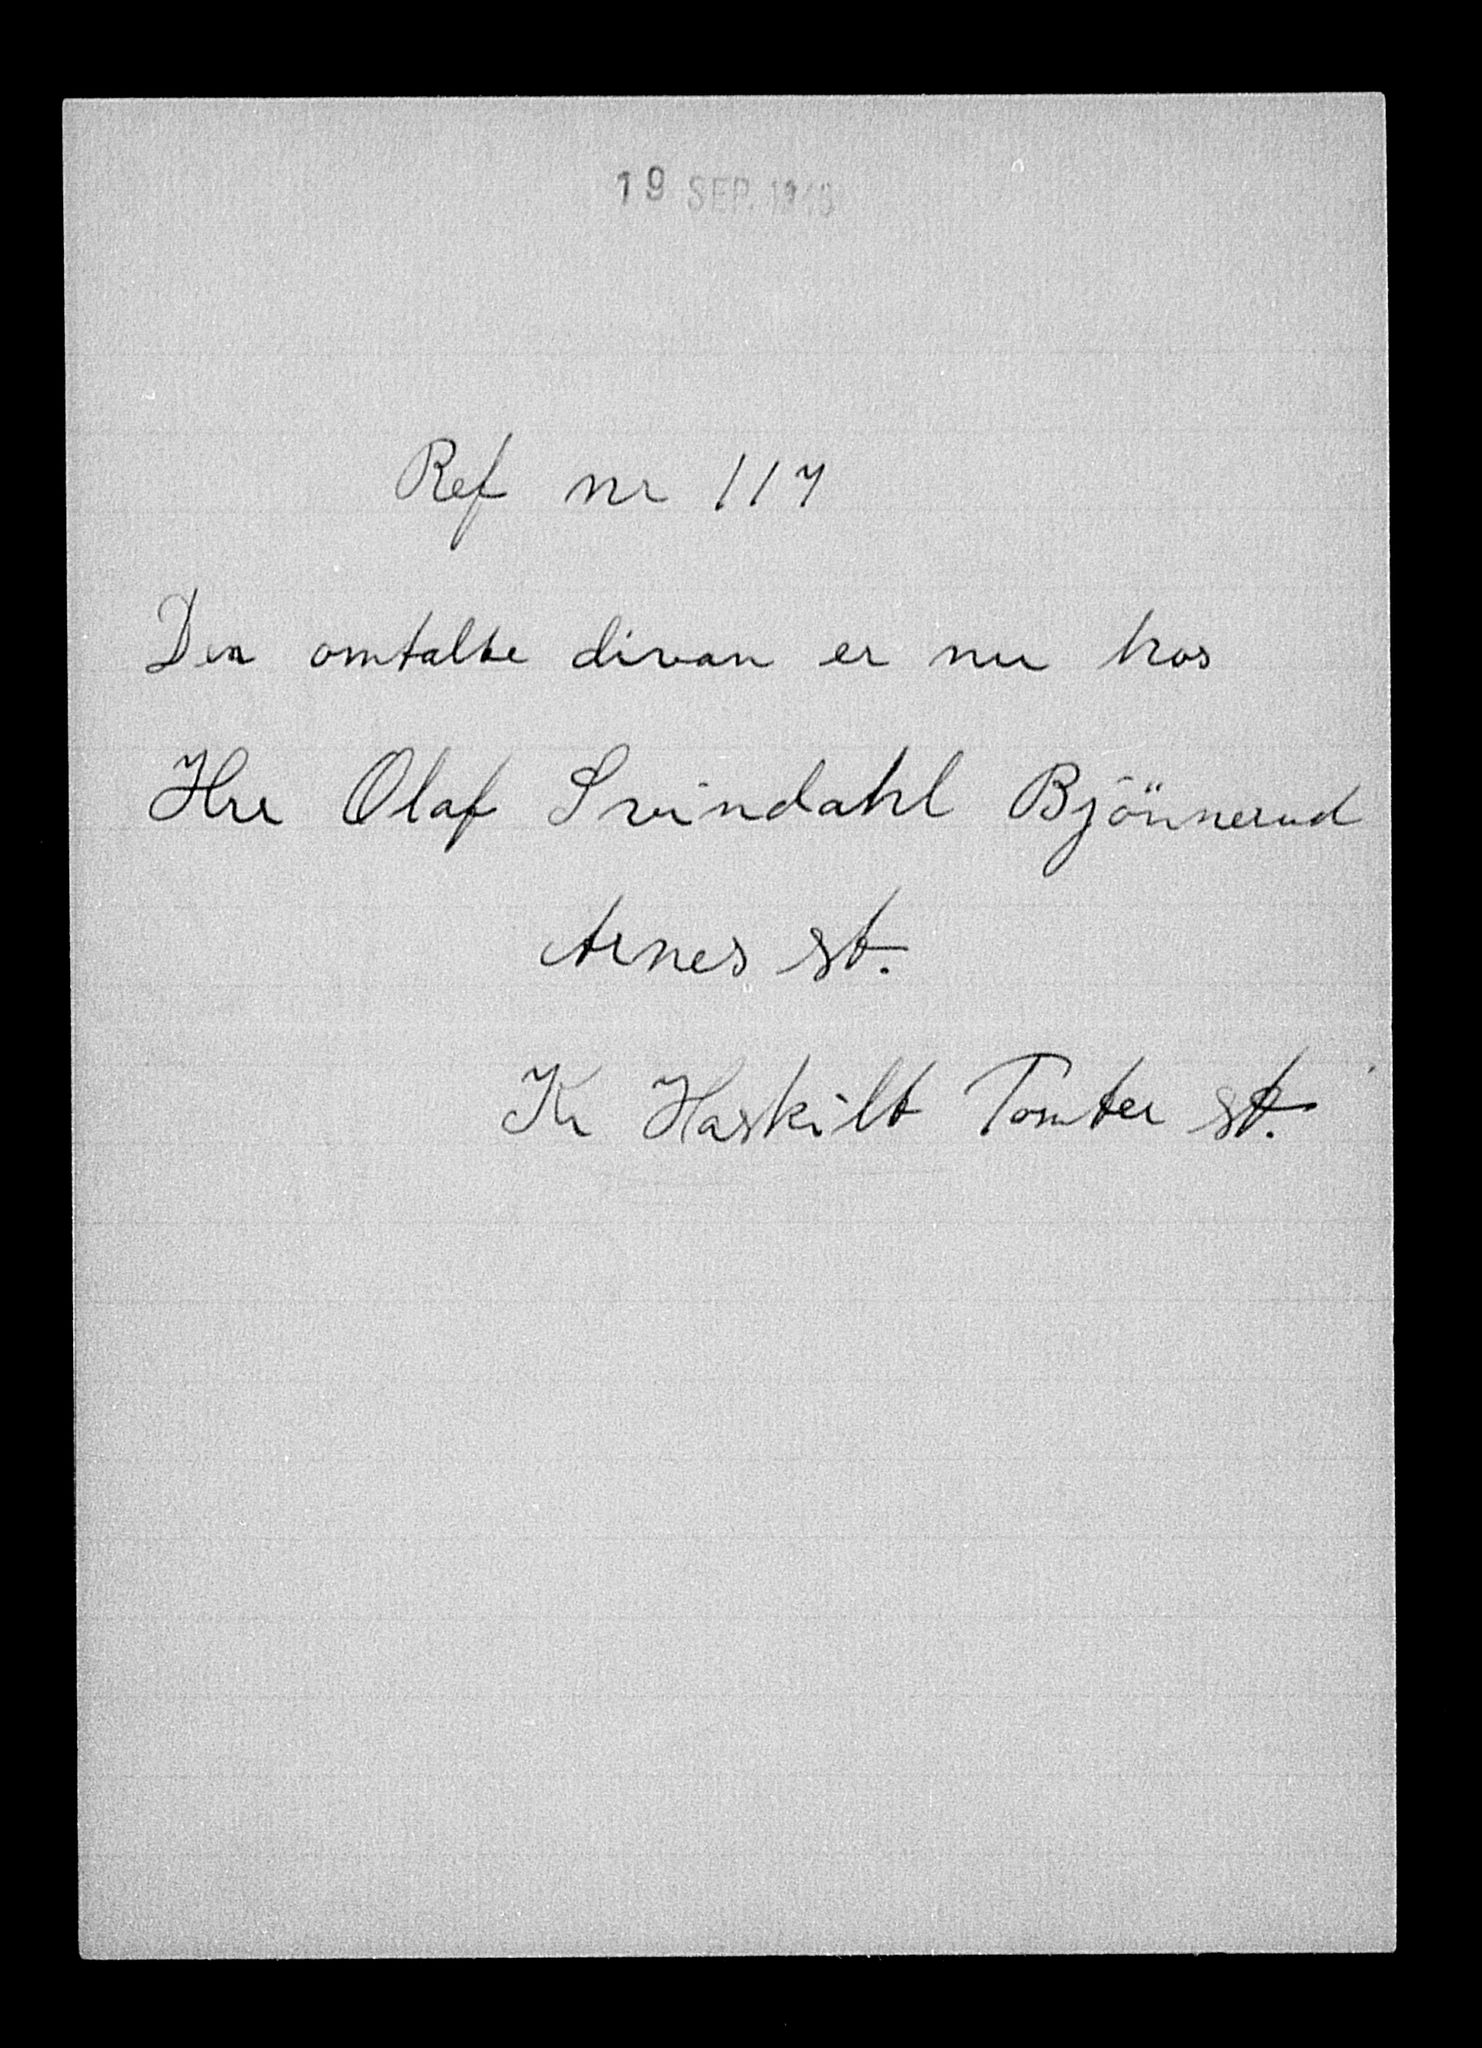 19 SEP.
Ref nr 117
Den omtalte divan er nu hos
Hrr Olaf Svindahl Bjönnerud
Arnes st.
Kr Haskilt Tomter st.